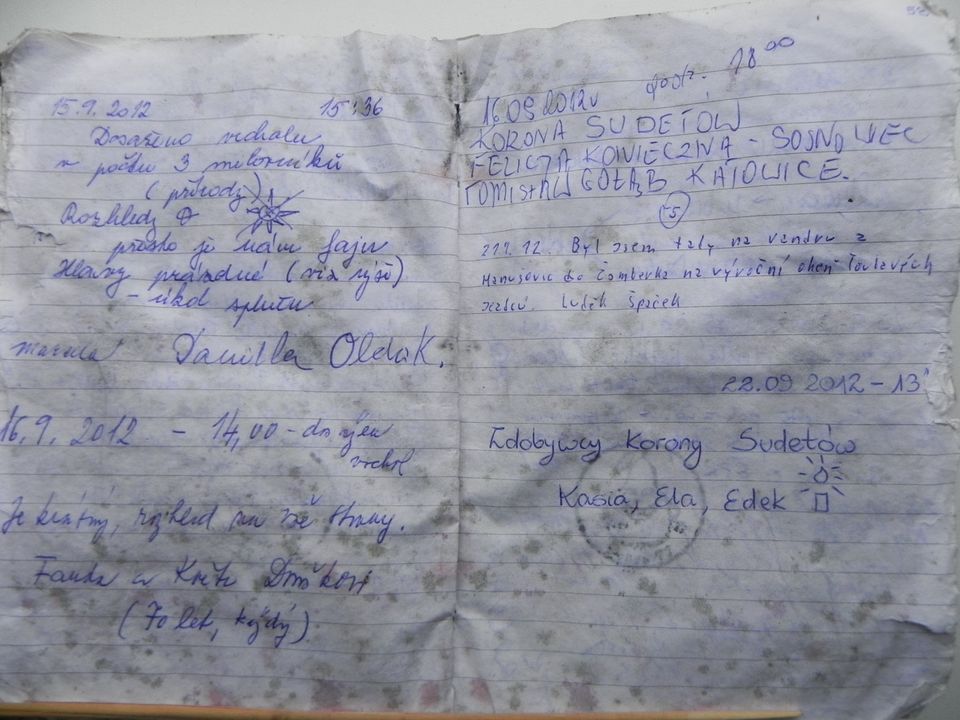 15.9.2012 15:36
Dosaženo vrcholu
v počtu 3 milovníků
(přírody)
Rozhledy
prosto je nám fajn
Hlavy prázdné (viz výše)
- úkol splněn
Marcela Danilka Oldák.
16.9.2012 - 14,00 - dobyjeu
vrchol
Je krásný, rozhled na vše strany.
Fanda a Květa
(70 let, každý)
92
16 09 2012r godz. 18 00
KORONA SUDETÓW
FELICJA KONIECZNA - SOSNOWIEC
TOMISŁAW GOŁĄB KATOWICE.
Byl jsem tady na vandru z
do Čomberka na výroční oheň Toulavých
Luděk Špaček
22.09 2012 - 13
Zdobywcy Korony Sudetów
Kasia, Ela, Edek